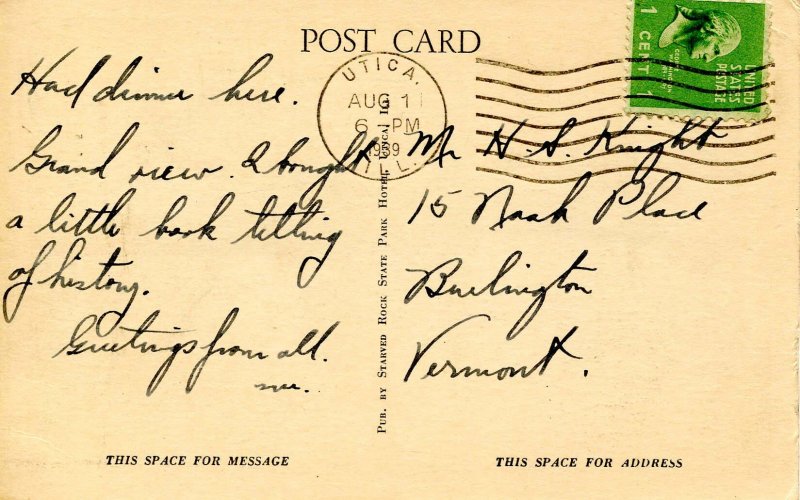 POST CARD
UTICA.
AUG 11
6 PM
1939
ILL.
1 CENT 1
UNITED
STATES
POSTAGE
Had dinner here.
Grand view. I bought
a little book telling
of history.
Greetings from all.
Mr. H. S. Knight
15 Place
Burlington
Vermont.
PUB. BY STARVED ROCK STATE PARK HOTEL, UTICA, ILL.
THIS SPACE FOR MESSAGE
THIS SPACE FOR ADDRESS